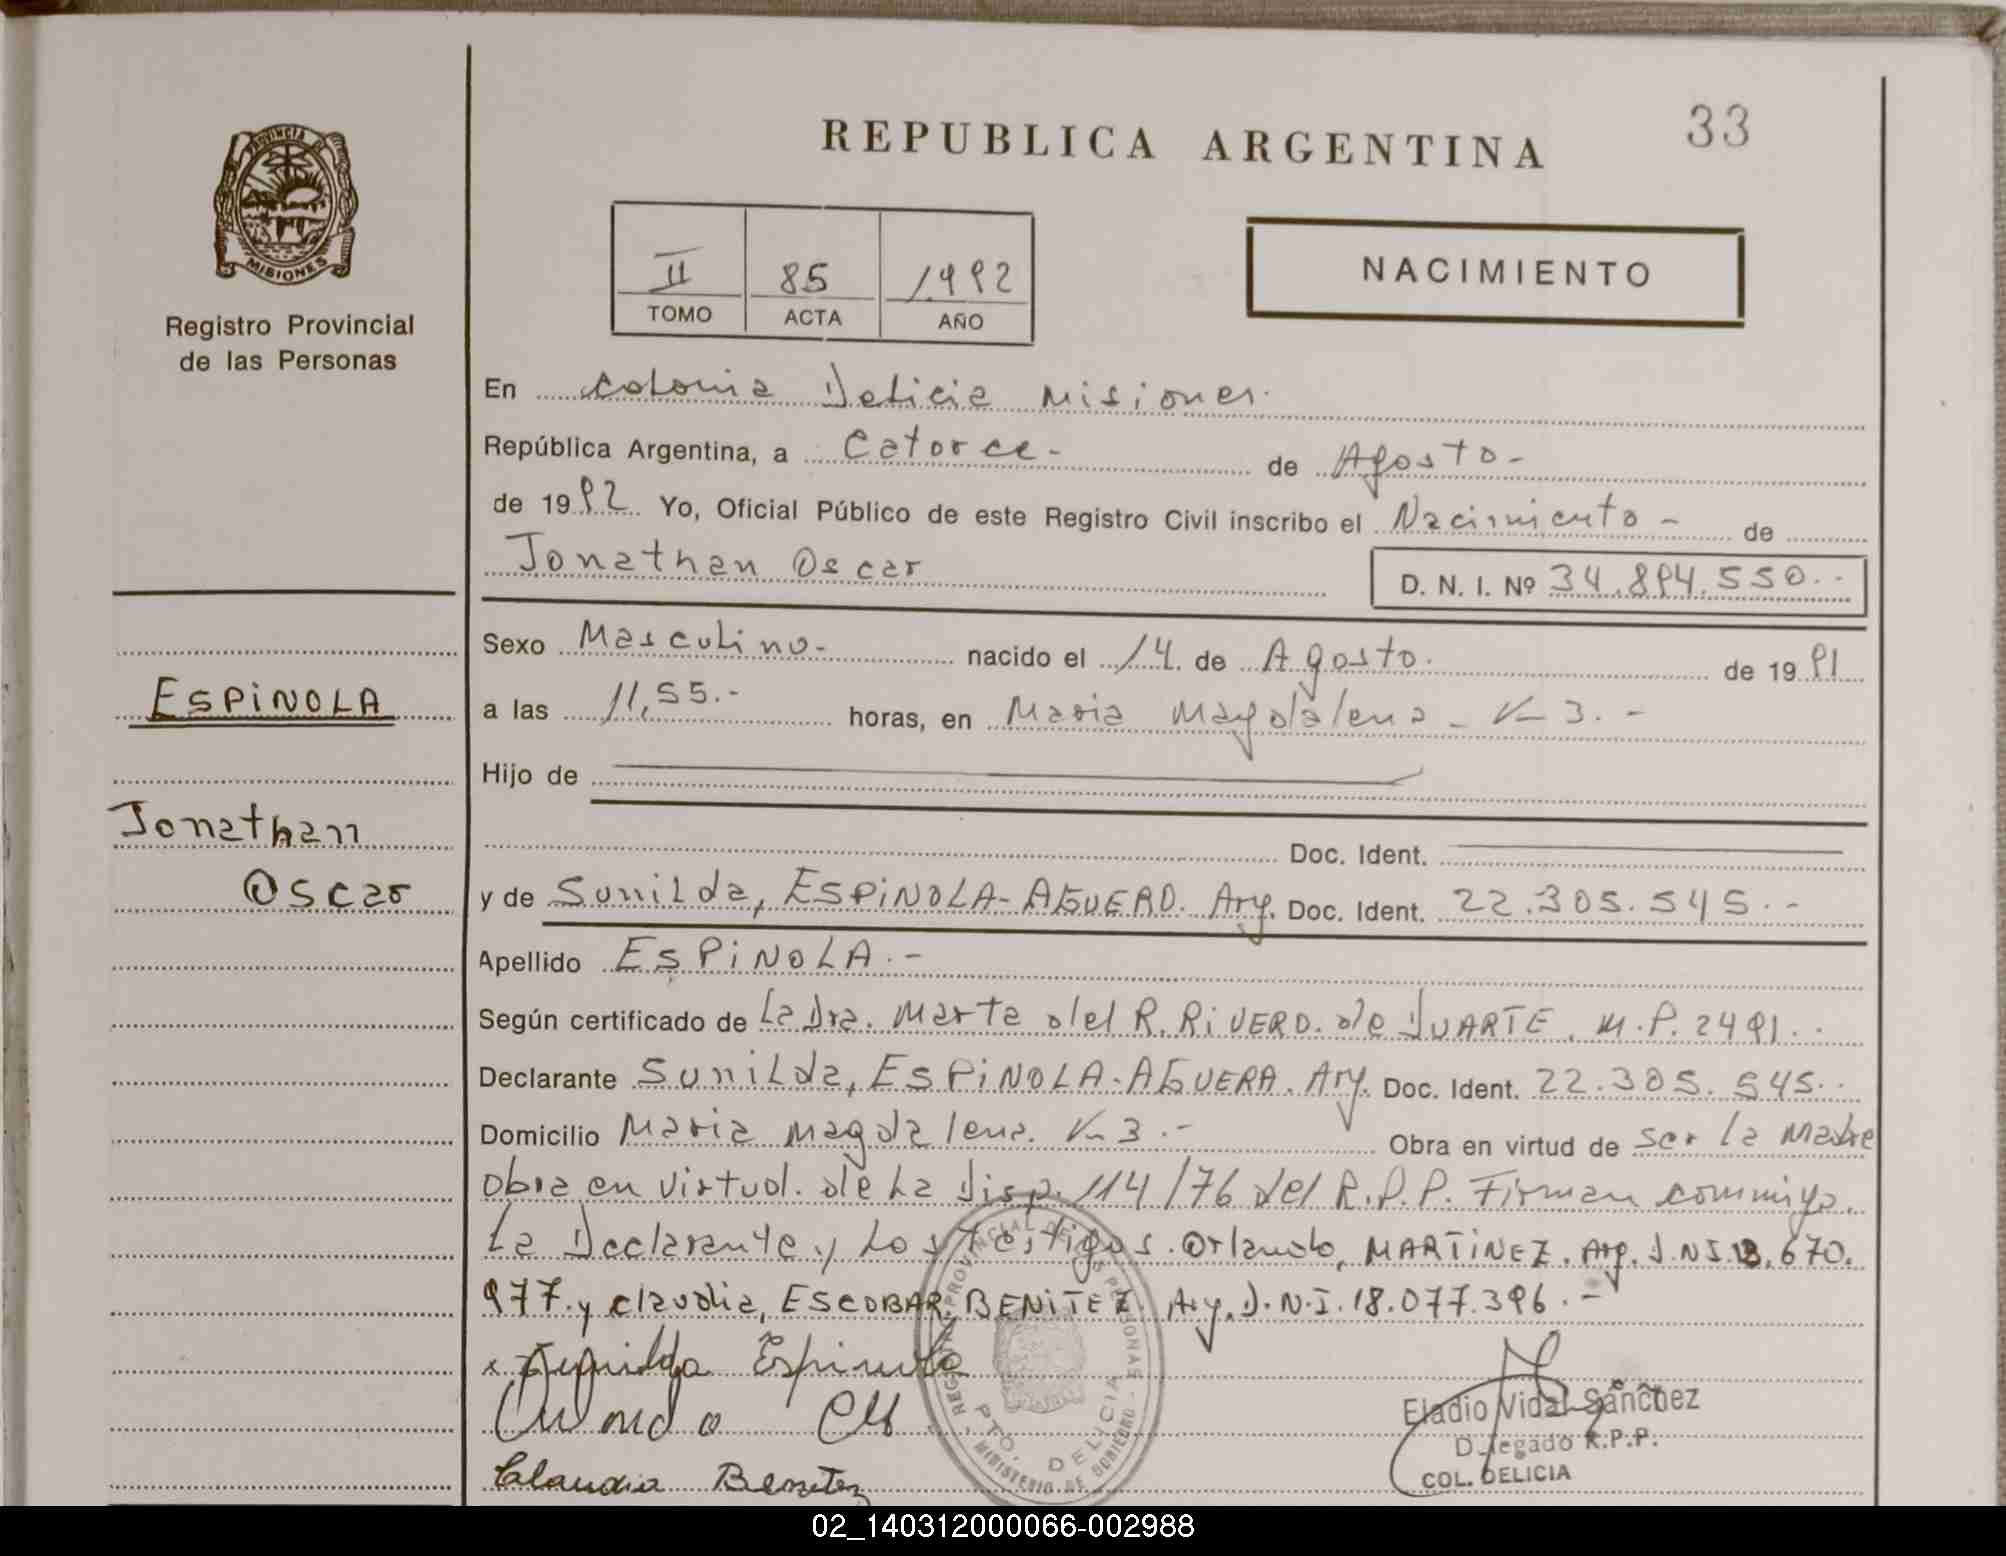 33
REPUBLICA ARGENTINA
PROVINCIA DE MISIONES
Registro Provincial
de las Personas
II 85 1992
TOMO ACTA AÑO
NACIMIENTO
En Colonia Delicia Misiones.
República Argentina, a Catorce- de Agosto-
de 1992 Yo, Oficial Público de este Registro Civil inscribo el Nacimiento- de
Jonathan Oscar D. N. I. Nº 34.894.550.-
Sexo Masculino- nacido el 14 de Agosto. de 1991
ESPiNOLA
a las 11,55.- horas, en Maria Magdalena- Km 3.-
Hijo de
Jonathan
Doc. Ident.
Oscar
y de Sunilda, ESPiNOLA-AGUERO. Arg. Doc. Ident. 22.305.545.-
Apellido ESPiNOLA.-
Según certificado de La Dra. Marta del R. RiVERO. de DUARTE. M.P. 2491..
Declarante Sunilda, ESPiNOLA-AGUERA. Arg. Doc. Ident. 22.305.545..
Domicilio Maria Magdalena. Km 3.- Obra en virtud de ser la Madre
obra en virtud. de La Disp. 114/76 del R.P.P. Firman conmigo.
La Declarante y Los testigos. Orlando, MARTiNEZ. Arg. D.N.I. 670.
977. y claudia, ESCOBAR. BENiTEZ. Arg. D.N.I. 18.077.396.-
x Espinola
REGISTRO PROVINCIAL DE LAS PERSONAS
PTO. DELICIA
MINISTERIO DE GOBIERNO
Claudia Benitez
Eladio Vidal Sánchez
Delegado R.P.P.
COL. DELICIA
02_140312000066-002988